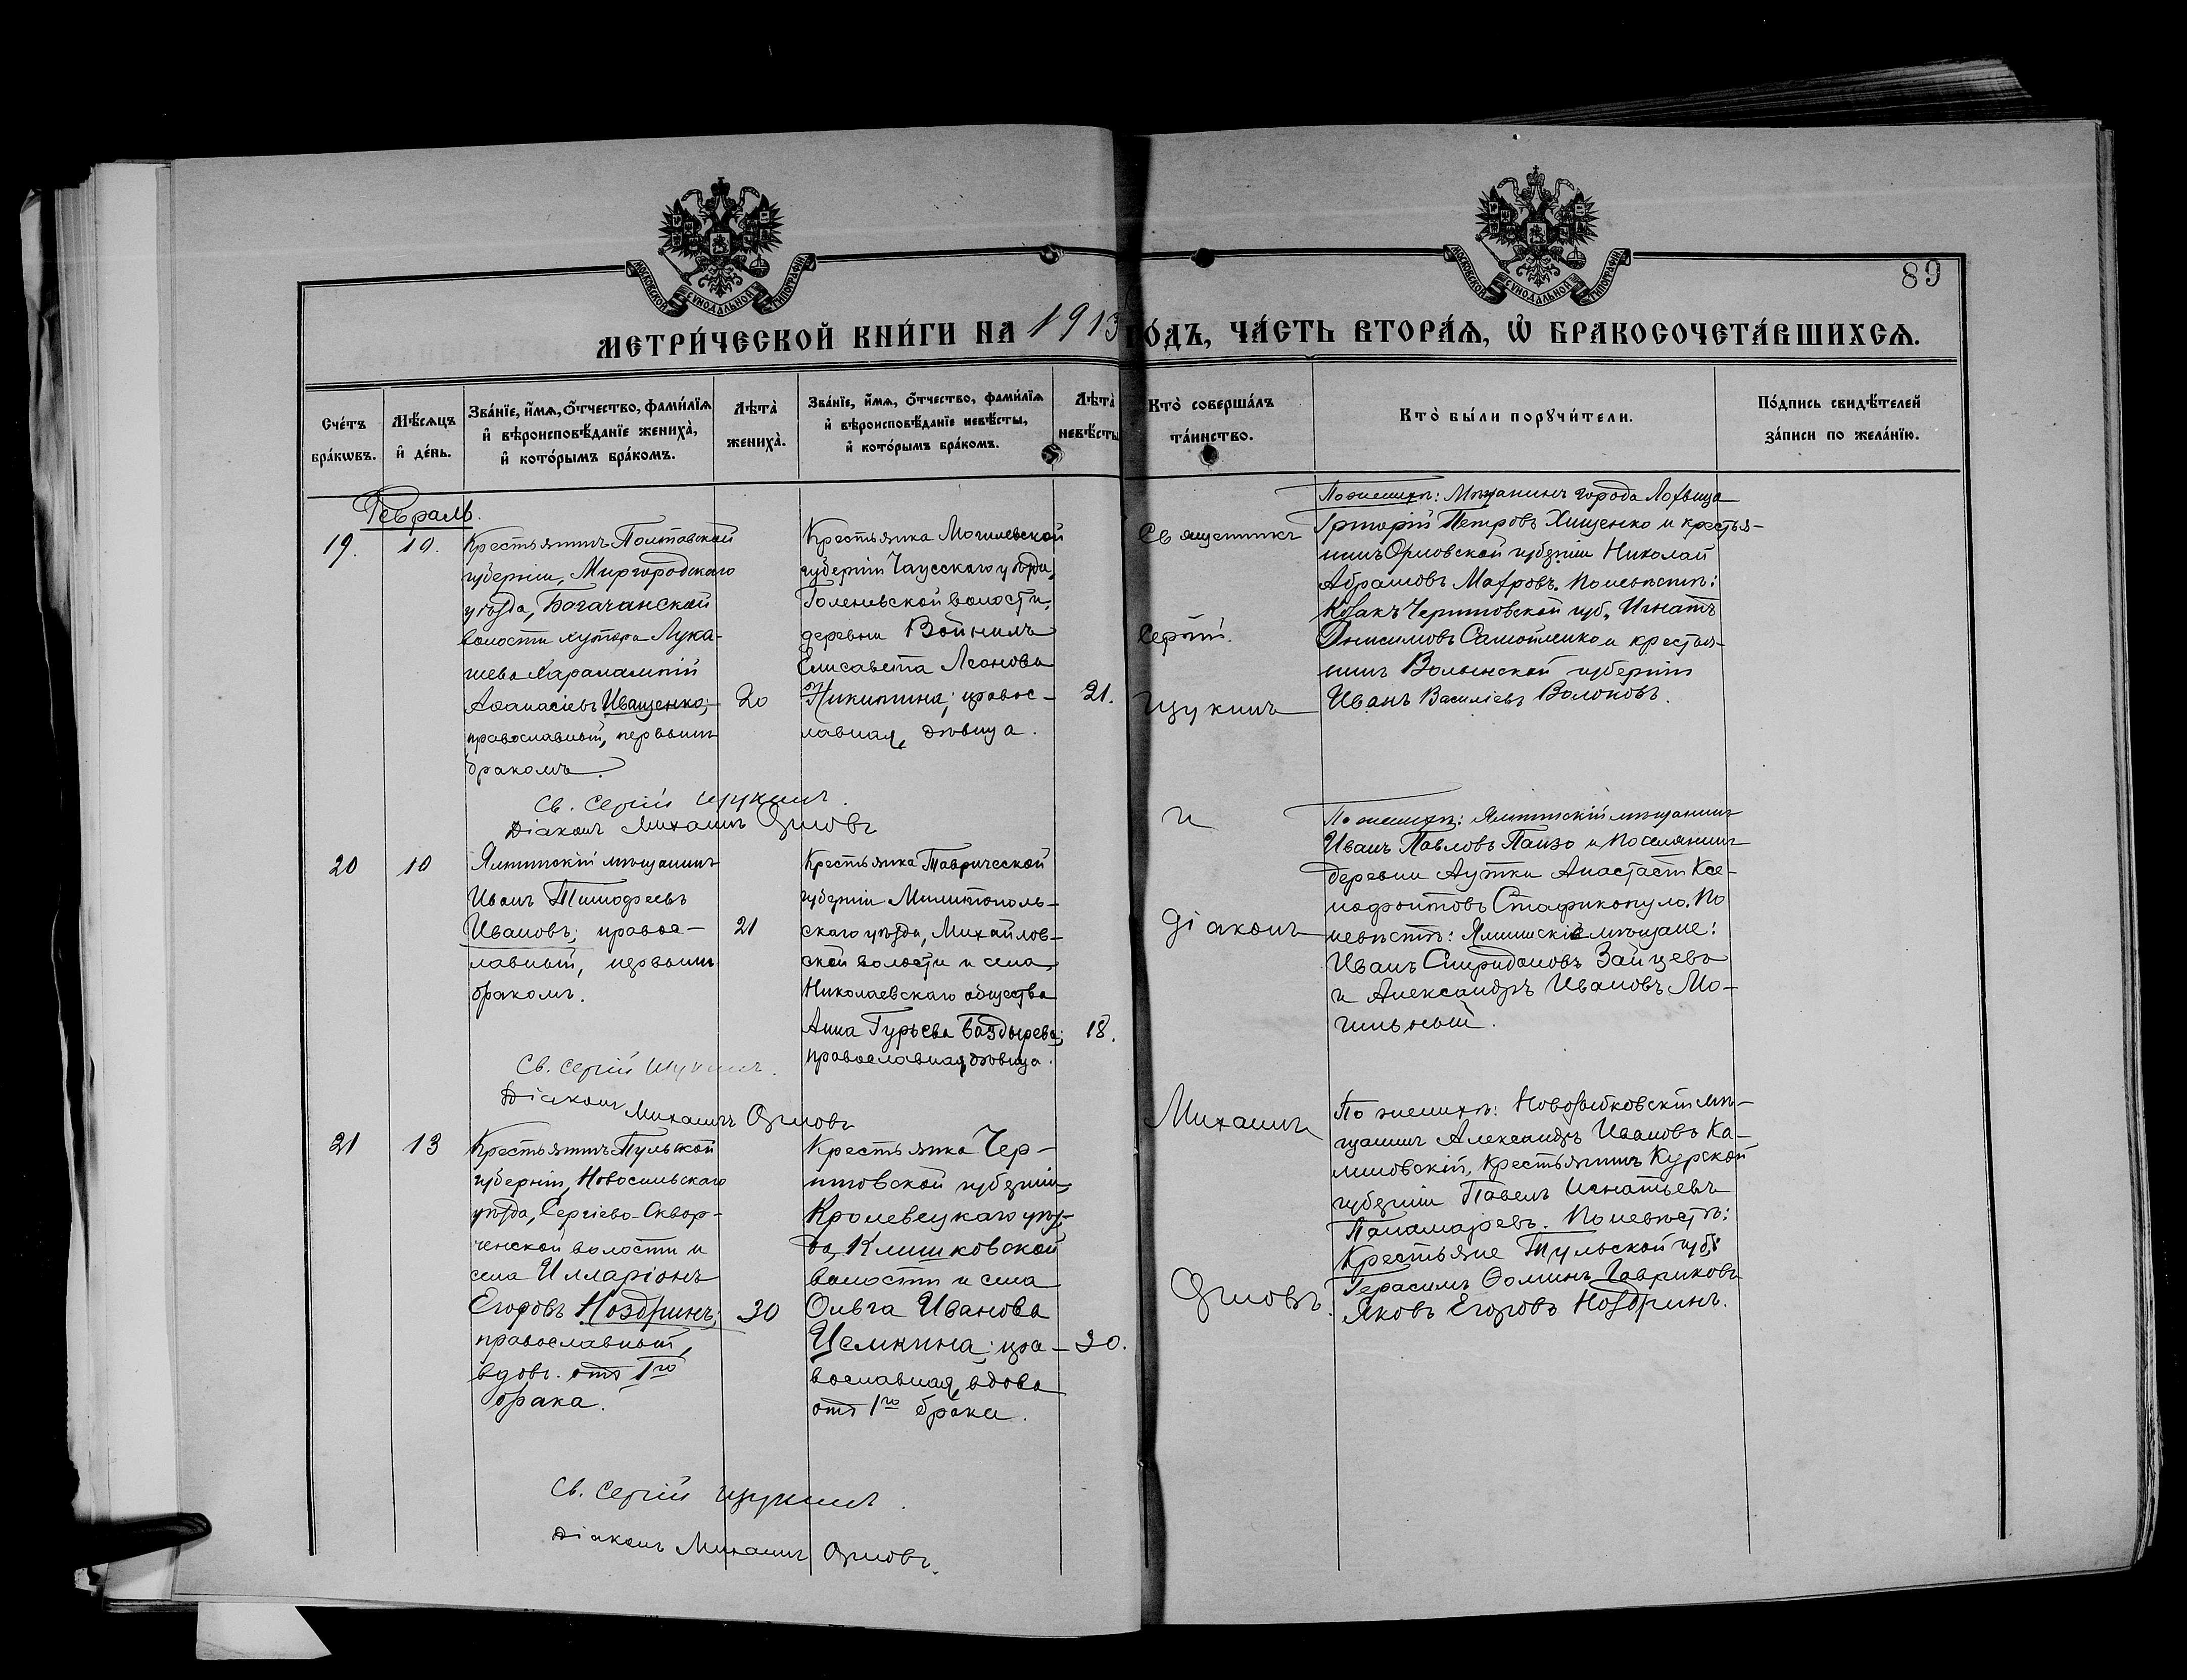 МОСКОВСКОЙ СѴНОДАЛЬНОЙ ТИПОГРАФІИ
МОСКОВСКОЙ СѴНОДАЛЬНОЙ ТИПОГРАФІИ
89
МЕТРИ́ЧЕСКОЙ КНИ́ГИ НА 1913 ГО́ДЪ, ЧА́СТЬ ВТОРА́Ѧ, Ѡ҆ БРАКОСОЧЕТА́ВШИХСѦ.
Сче́тъ бра́кѡвъ.
Мѣ́сѧцъ и҆ де́нь.
Зва́нїе, и҆́мѧ, ѻ҆́тчество, фами́лїѧ и҆ вѣроисповѣ́данїе жениха̀, и҆ кото́рымъ бра́комъ.
Лѣта̀ жениха̀.
Зва́нїе, и҆́мѧ, ѻ҆́тчество, фами́лїѧ и҆ вѣроисповѣ́данїе невѣ́сты, и҆ кото́рымъ бра́комъ.
Лѣта̀ невѣ́сты
Кто̀ соверша́лъ та́инство.
Кто̀ бы́ли порꙋчи́тели.
По́дпись свидѣ́телей за́писи по жела́нїю.
Февраль.
19.
10.
Крестьянинъ Полтавской
губерніи, Миргородскаго
уѣзда, Богачанской
волости хутора Лука-
шева Харалампій
Аѳанасіевъ Иващенко;
православный, первымъ
бракомъ.
20
Крестьянка Могилевской
губерніи Чаусскаго уѣзда,
Голеневской волости,
деревни Войнилъ
Елисавета Леонова
Никитина; правос-
лавная, дѣвица.
21.
По женихѣ: Мѣщанинъ города Лохвица
Григорій Петровъ Хищенко и крестья-
нинъ Орловской губерніи Николай
Абрамовъ Махровъ. По невѣстѣ:
Козакъ Черниговской губ. Игнатъ
Онисимовъ Самойленко и крестья-
нинъ Волынской губерніи
Иванъ Василіевъ Волоковъ.
Св. Сергій Щукинъ.
Діаконъ Михаилъ Орловъ
20
10
Ялтинскій мѣщанинъ
Иванъ Тимофеевъ
Ивановъ; правос-
лавный, первымъ
бракомъ.
21
Крестьянка Таврической
губерніи Милитополь-
скаго уѣзда, Михайлов-
ской волости и села,
Николаевскаго общества
Анна Гурьева Баздырева;
православная, дѣвица.
18.
По женихѣ: Ялтинскій мѣщанинъ
Иванъ Павловъ Панзо и поселянинъ
деревни Аутки Анастасій Ксе-
нофонтовъ Стафикопуло. По
невѣстѣ: Ялтинскіе мѣщане:
Иванъ Спиридоновъ Зайцевъ
и Александръ Ивановъ Мо-
гильный.
Св. Сергій Щукинъ.
Діаконъ Михаилъ Орловъ
21
13
Крестьянинъ Тульской
губерніи, Новосильскаго
уѣзда, Сергіево-Сквор-
ченской волости и
села Илларіонъ
Егоровъ Ноздринъ;
православный,
вдов. отъ 1го
брака.
30
Крестьянка Чер-
ниговской губерніи,
Кролевецкаго уѣз-
да, Клишковской
волости и села
Ольга Иванова
Цемкина; пра-
вославная, вдова
отъ 1го брака.
30.
По женихѣ: Новозыбковскій мѣ-
щанинъ Александръ Ивановъ Ка-
линовскій, крестьянинъ Курской
губерніи Павелъ Игнатьевъ
Панамаревъ. По невѣстѣ:
Крестьяне Тульской губ.:
Герасимъ Ѳоминъ Гавриковъ
Яковъ Егоровъ Ноздринъ.
Священникъ
Сергій
Щукинъ
и
діаконъ
Михаилъ
Орловъ.
Св. Сергій Щукинъ.
Діаконъ Михаилъ Орловъ.